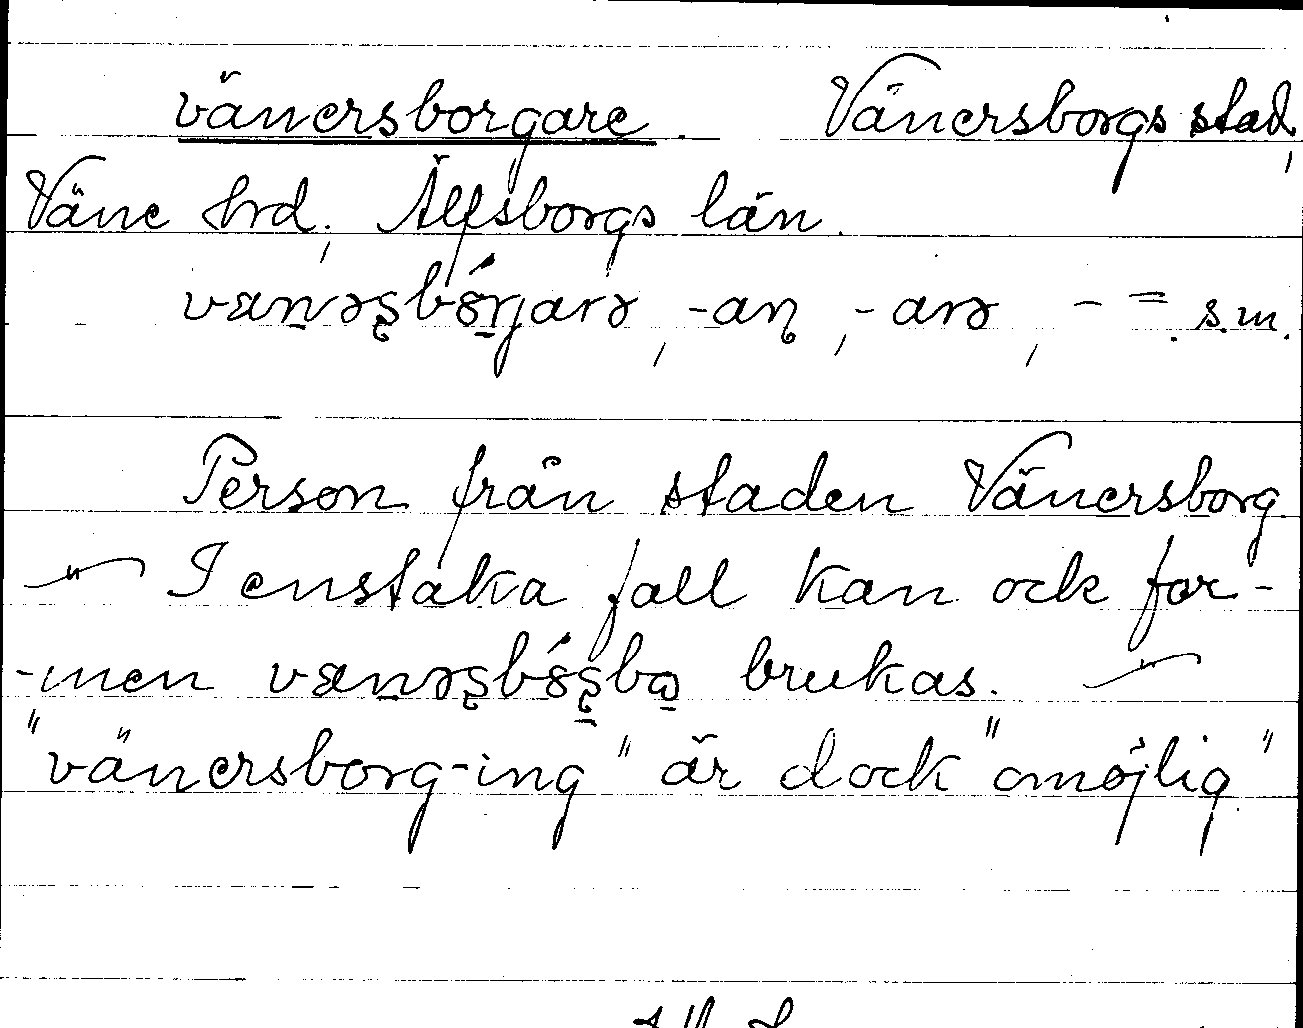 vänersborgare. Vänersborgs stad,
Väne hrd, Älfsborgs län.
vænəʂbɷ́rjarə, -aɳ, -arə, - = s.m.
Person från staden Vänersborg
~ I enstaka fall kan ock for-
-men vænəʂbɷ́ʂbɷ brukas. ~
"vänersborg-ing" är dock "omöjlig."